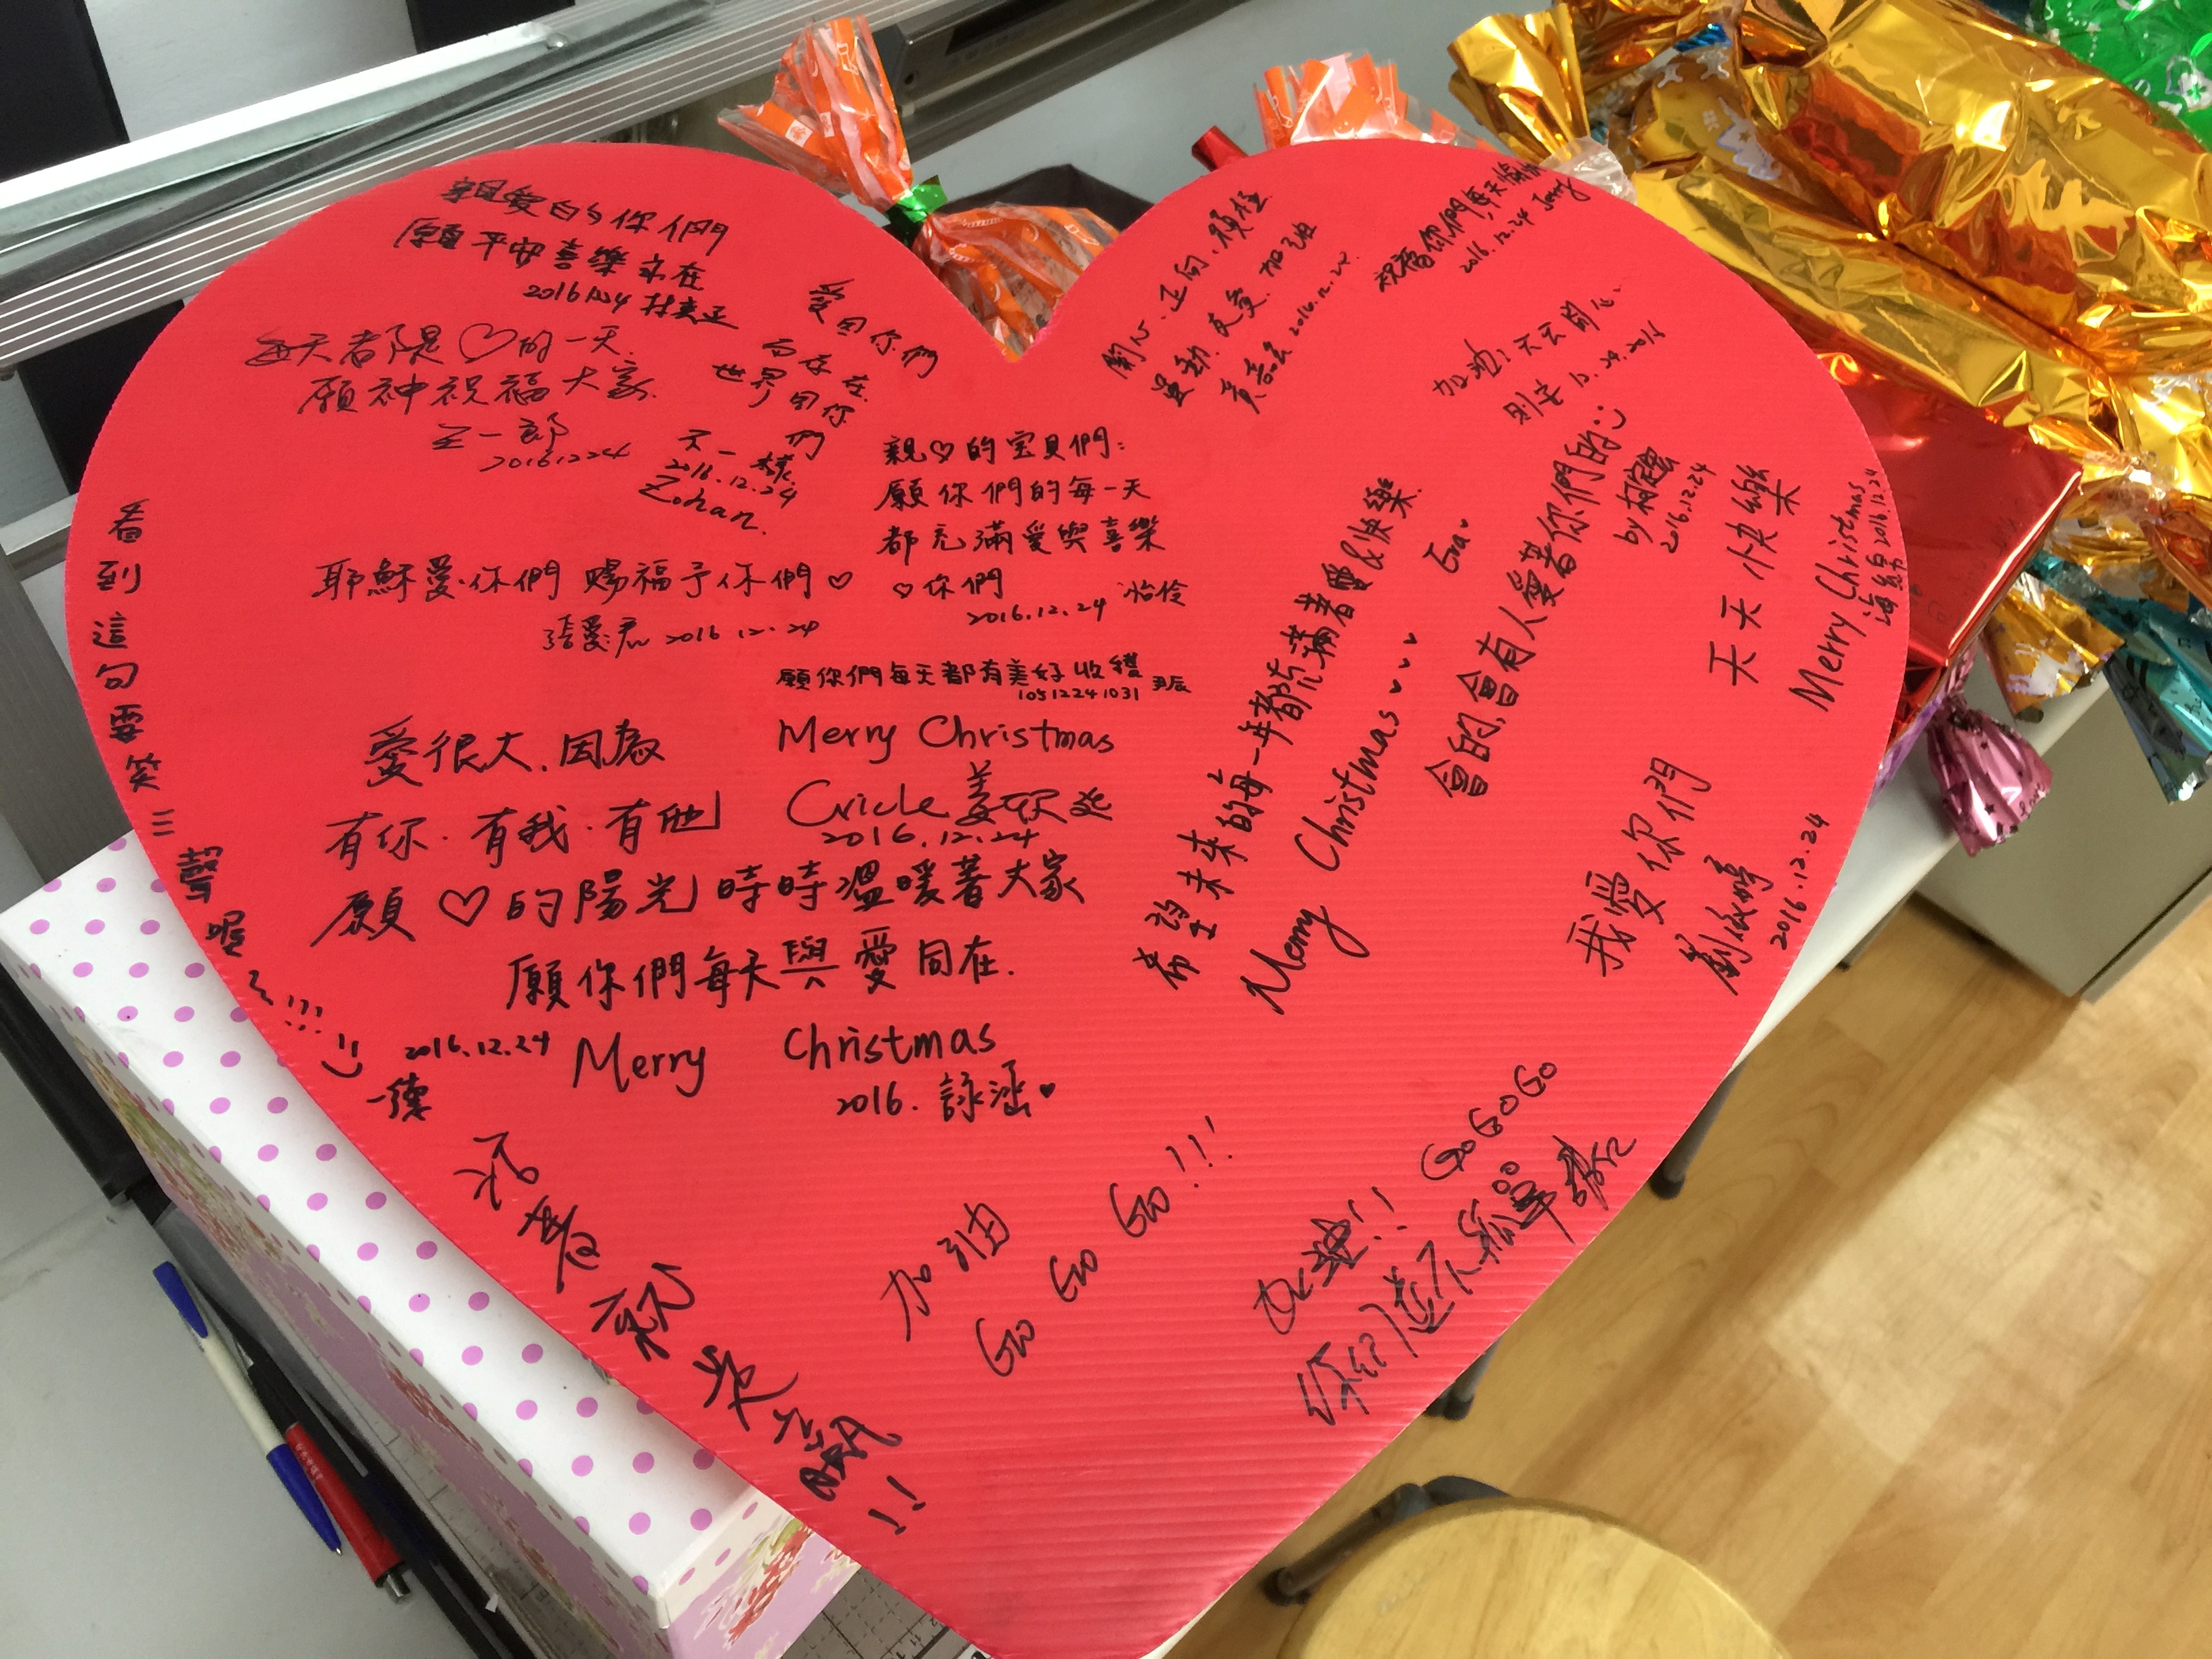 親愛的你們
願平安喜樂永在
20161224
每天都是♡的一天
願神祝福大家
王一郎
20161224
愛因你們
而存在
世界因你
們
不一樣
2016.12.24
Zohan.
親♡的宝貝們：
願你們的每一天
都充滿愛與喜樂
♡你們
2016.12.24 怡伶
耶穌愛你們 賜福予你們♡
張愛君 2016 12.24
願你們每天都有美好收穫
10512241031
愛很大.因為
有你.有我.有他
願♡的陽光時時溫暖著大家
Merry Christmas
2016.12.24
願你們每天與愛同在.
Merry Christmas
2016. 詠涵♥
看到這句要笑三聲喔~!!!
2016.12.24
一德
活著就是
!!
加油
Go Go Go Go!!!
加油!! GoGoGo
開心.正向.積極
運動.友愛.加班
2016.12.24
祝福你們,每天愉快
2016.12.24 Jerry
加油!天天開心
12.24.2016
希望未來的每一年都充滿著愛&快樂
Merry Christmas
Eva
會的,會有人愛著你們的:)
2016.12.24
天天快樂
Merry Christmas
2016.12.24
我愛你們
2016.12.24